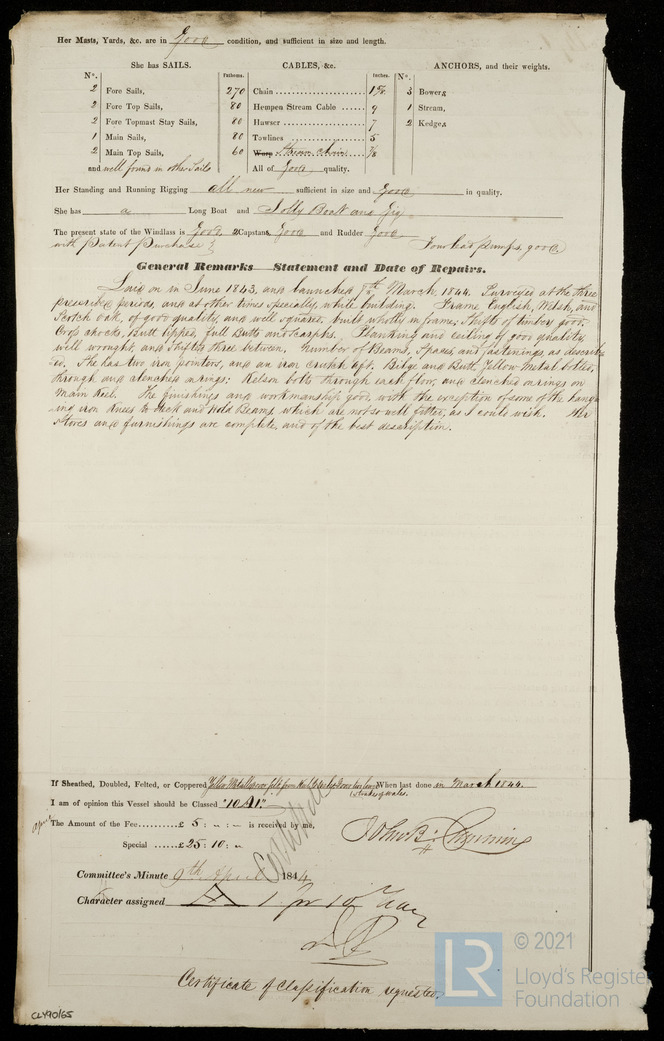 Her Masts, Yards, &c. are in Good condition, and sufficient in size and length.
She has SAILS.
CABLES, &c.
ANCHORS, and their weights.
N°. Fathoms. Inches. N°.
2 Fore Sails, 270 Chain 3 Bowers
2 Fore Top Sails, 80 Hempen Stream Cable 9 1 Stream,
2 Fore Topmast Stay Sails, 80 Hawser 7 2 Kedges
1 Main Sails, 80 Towlines 5
2 Main Top Sails, 60 Warp Stream chain 7/8
and well found in other Sails All of Good quality.
Her Standing and Running Rigging all new sufficient in size and Good in quality.
She has a Long Boat and Jolly Boat and Gig
The present state of the Windlass is Good Capstan Good and Rudder Good
with Patent Purchase Four lead pumps, good
General Remarks Statement and Date of Repairs.
Laid on in June 1843, and launched March, 1844. Surveyed at the three
prescribed periods, and at other times specially, while building. Frame English, Welsh, and
Scotch Oak, of good quality, and well squared, built wholly in frame; Shifts of timber good.
Crop chocks, Butt lipped, full Butts and Scarphs. Planking and ceiling of good quality,
well wrought, and Shifted three between. Number of Beams, Spaces and fastenings, as describ-
ed. She has two iron pointers, and an iron Crutch aft. Bilge and Butt Yellow Metal bolted,
through and clenched on rings; Kelson bolts through each floor, and clenched on rings on
Main Keel. The finishings and workmanship good, with the exception of some of the hang-
ing iron Knees to Deck and Hold Beams, which are not so well fitted, as I could wish. Her
Stores and furnishings are complete, and of the best description.
If Sheathed, Doubled, Felted, or Coppered Yellow Metalled over felt from Keel to When last done in March 1844.
Strakes of Wales.
I am of opinion this Vessel should be Classed "10 A1".
The Amount of the Fee £ 5 : - : - is received by me,
Special £ 25 : 10 : -
Committee's Minute 9th April 1844
Character assigned A 1 for 10 Years
Certificate of Classification requested.
CLY90/65
LR
© 2021
Lloyd's Register
Foundation